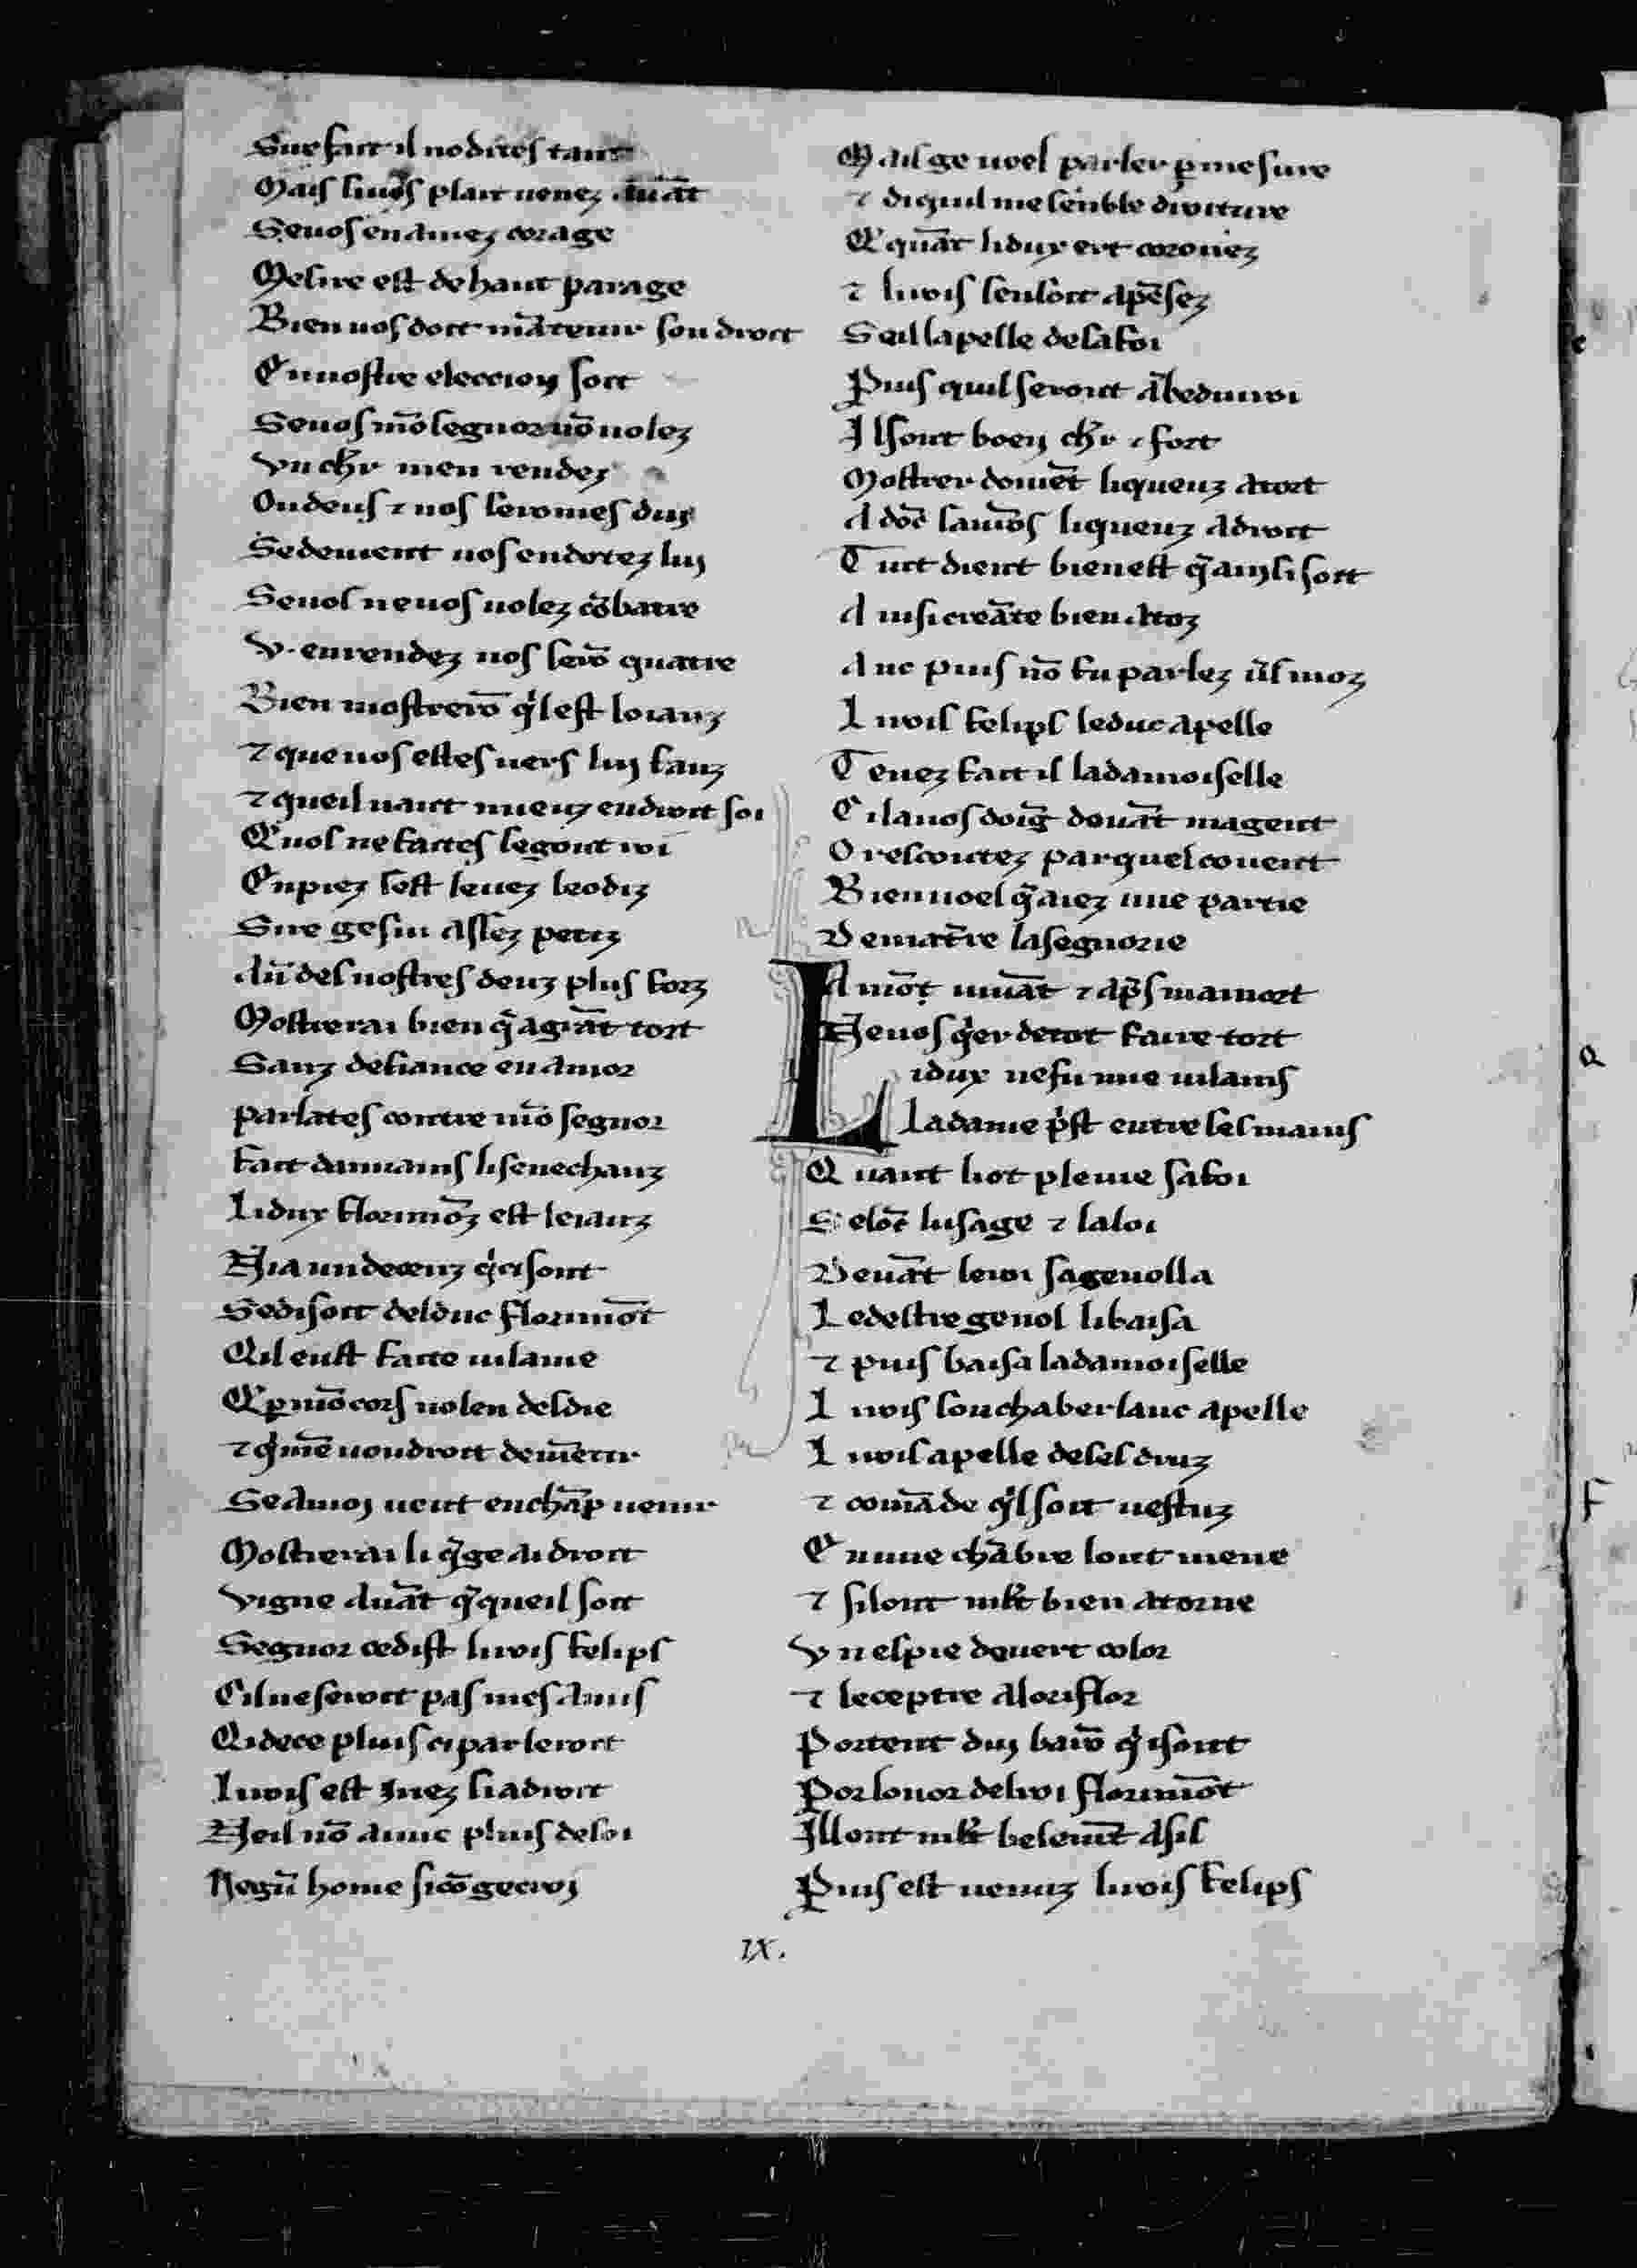 Sire fait il no dites tant
Mais si uos plait uenez auāt
Se uos en auiez corage
Mesire est de haut parage
Bien uos doit māteuir son droit
En uostre eleccion soit
Se uos mō segnor nō uolez
Vn chr̄ men rendez
On deus ⁊ nos seromes dui
Se de uient uos en dotez lui
Se uos ne uos uolez cōbatre
V. en rendez nos serō quatre
Bien mostrerō qͥl est loiauz
⁊ que uos estes uers lui fauz
⁊ queil uaut mieuz endroit soi
Q uos ne faites segont roi
En piez sest leuez leodiz
Sire ge sui assez petiz
Aū des uostres deuz plus forz
Mosterai bien q̄ a grāt tort
Sanz defiance en amor
parlates contre mō segnor
fait damiains li senechauz
Li dux florimōz est leiauz
N ia un de ceuz qͥ ci sont
Se disoit del duc florimōt
Qil eust faite uilanie
Q ꝑ mō cors nolen desdie
⁊ qͥ mē uoudroit demētir
Se a moi ueut en chāp uenir
Mosterai li q̄ ge ai droit
Vigne auāt q̄ queil soit
Segnor ce dist li rois felips
Cil ne seroit pas mes amis
Qi de ce pluis ci parleroit
Li rois est Juez si a droit
N eil nō a unc pluis de soi
Negū home si cō ge croi
Mais ge uoel parler ꝑ mesure
⁊ di quil me sēnble droiture
Q quāt li dux ert coronez
⁊ li rois sen soit apēsez
Se il lapelle de sa foi
Puis quil seront ābedui roi
Il sont boen chr̄ ⁊ fort
Mostrer doiuēt li queuz a tort
A dōc sauōs li queuz a droit
Tuit dient bien est q̄ ainsi soit
Ainsi creāte bien a toz
Auc puis nō fu parlez us̄ moz
Li rois felips le duc apelle
Tenez fait il la damoiselle
Ci la uos doiḡ deuāt ma gent
Or escoutez par quel couent
Bien uoel q̄ aiez une partie
De ma tr̄e la segnorie
A mōt uiuāt ⁊ ap̄s ma mort
Ne uos qͥer de tot faire tort
Li dux ne fu mie uilains
La dame pͥst entre ses mains
Quant li ot pleuie sa foi
Selōc lusage ⁊ la loi
Deuāt le roi sagenolla
Le destre genol li baisa
⁊ puis baisa la damoiselle
Li rois son chaberlanc apelle
Li rois apelle de ses druz
⁊ comāde qͥl soit uestuz
En une chābre lont mene
⁊ si lont ml̄t bien atorne
Vn espie de uert color
⁊ le ceptre a lori flor
Portent dui barō qͥ i sont
Por lonor del roi florimōt
Il lont ml̄t belemēt asis
Puis est uenuz li rois felips
IX.